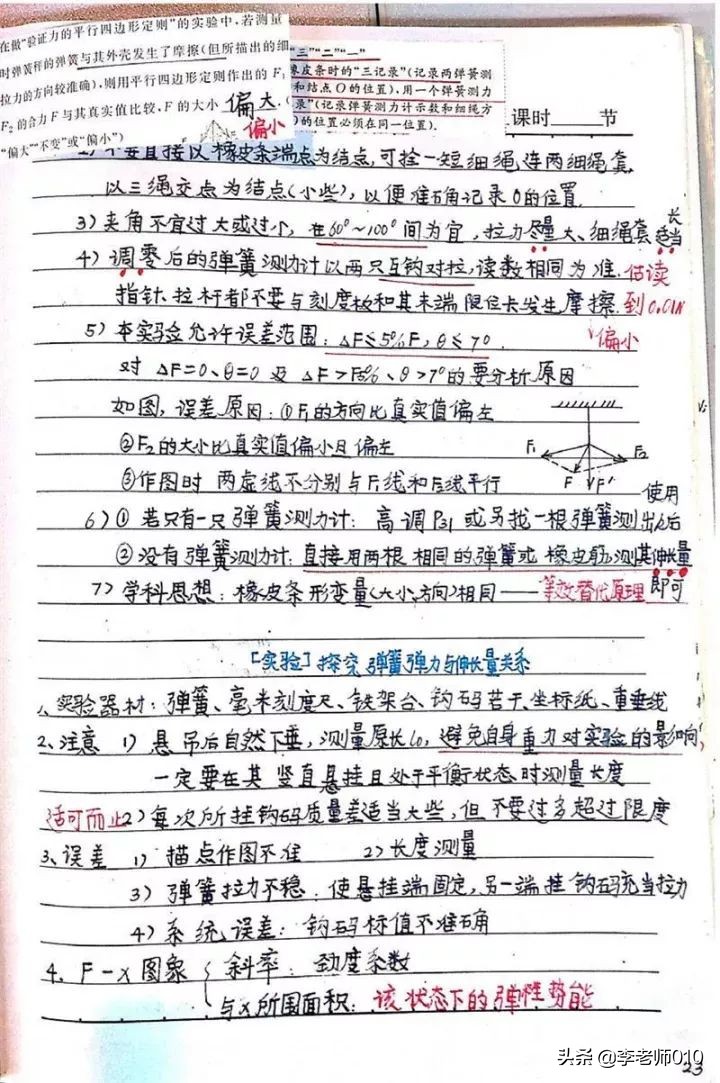 在做“验证力的平行四边形定则”的实验中,若测量
时弹簧秤的弹簧与其外壳发生了摩擦(但所描出的细
拉力的方向较准确),则用平行四边形定则作出的 F₁
F₂ 的合力 F 与其真实值比较, F 的大小 偏大.(
“偏大”“不变”或“偏小”) 偏小
“三”“二”“一”
橡皮条时的“三记录”(记录两弹簧测
和结点 O 的位置),用一个弹簧测力
录”(记录弹簧测力计示数和细绳方
)的位置必须在同一位置).
课时 节
2) 不要直接以橡皮条端点为结点,可拴一短细绳连两细绳套
以三绳交点为结点(小些),以便准确记录O的位置
3) 夹角不宜过大或过小,在60°~100°间为宜,拉力尽量大、细绳套适当长
4) 调零后的弹簧测力计以两只互钩对拉,读数相同为准. 估读
指针、拉杆都不要与刻度板和其末端限位卡发生摩擦. 到0.01N
偏小
5) 本实验允许误差范围: ΔF≤5%F, θ≤7°.
对 ΔF=0、θ=0 及 ΔF>F5%、θ>7°的要分析原因
如图,误差原因:①F₁的方向比真实值偏左
②F₂的大小比真实值偏小且偏左
③作图时 两虚线不分别与F₁线和F₂线平行
F₁ F₂ F F'
6)① 若只有一只弹簧测力计: 高调P31 或另找一根弹簧测出k后使用
② 没有弹簧测力计:直接用两根相同的弹簧或橡皮筋,测其伸长量
即可
7) 学科思想:橡皮条形变量(大小、方向)相同——等效替代原理
[实验]探究弹簧弹力与伸长量关系
1、实验器材: 弹簧、毫米刻度尺、铁架台、钩码若干、坐标纸、重垂线
2、注意 1) 悬吊后自然下垂,测量原长l₀,避免自身重力对实验的影响,
一定要在其竖直悬挂且处于平衡状态时测量长度
适可而止 2) 每次所挂钩码质量差适当大些,但不要过多超过限度
3、误差 1) 描点作图不准 2) 长度测量
3) 弹簧拉力不稳: 使悬挂端固定,另一端挂钩码充当拉力
4) 系统误差: 钩码标值不准确
4. F-x图象 { 斜率: 劲度系数
与x所围面积: 该状态下的弹性势能
头条 @李老师010
23